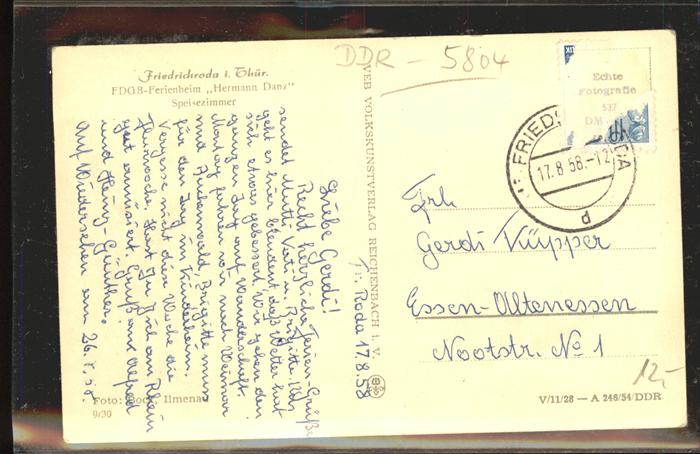 DDR - 5804
Friedrichroda i. Thür.
FDGB-Ferienheim „Hermann Danz"
Speisezimmer
Fr. Roda 17.8.58
Liebe Gerdi!
Recht herzliche Ferien-Grüße
sendet Mutti Vati u. Brigitte. Uns
geht es hier blendent, daß Wetter hat
sich etwas gebessert. Wir gehen den
ganzen Tag auf Wanderschaft.
Montag fahren wir nach Weimar
und Buchenwald, Brigitte muß
für den Tag ins Kinderheim.
Vergesse nicht diese Woche die
Flurwoche. Hast Du Dich am Rhein
gut amüsiert. Gruß an Alfred
und Heinz-Günther.
Auf Wiedersehen am 26.8.58.
Foto: Bock, Ilmenau
9/30
VEB VOLKSKUNSTVERLAG REICHENBACH i. V.
Echte
Fotografie
537
DM
17.8.58.-12
d
Frl.
Gerdi Küpper
Essen-Altenessen
Nootstr. No 1
12,-
V/11/28 — A 246/54/DDR